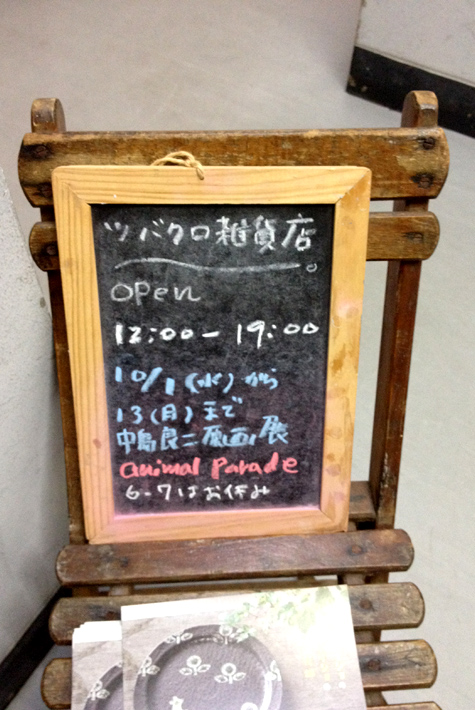 ツバクロ雑貨店
open
12:00-19:00
10/1(水)から
13(月)まで
中島良二原画展
animal Parade
6-7はお休み